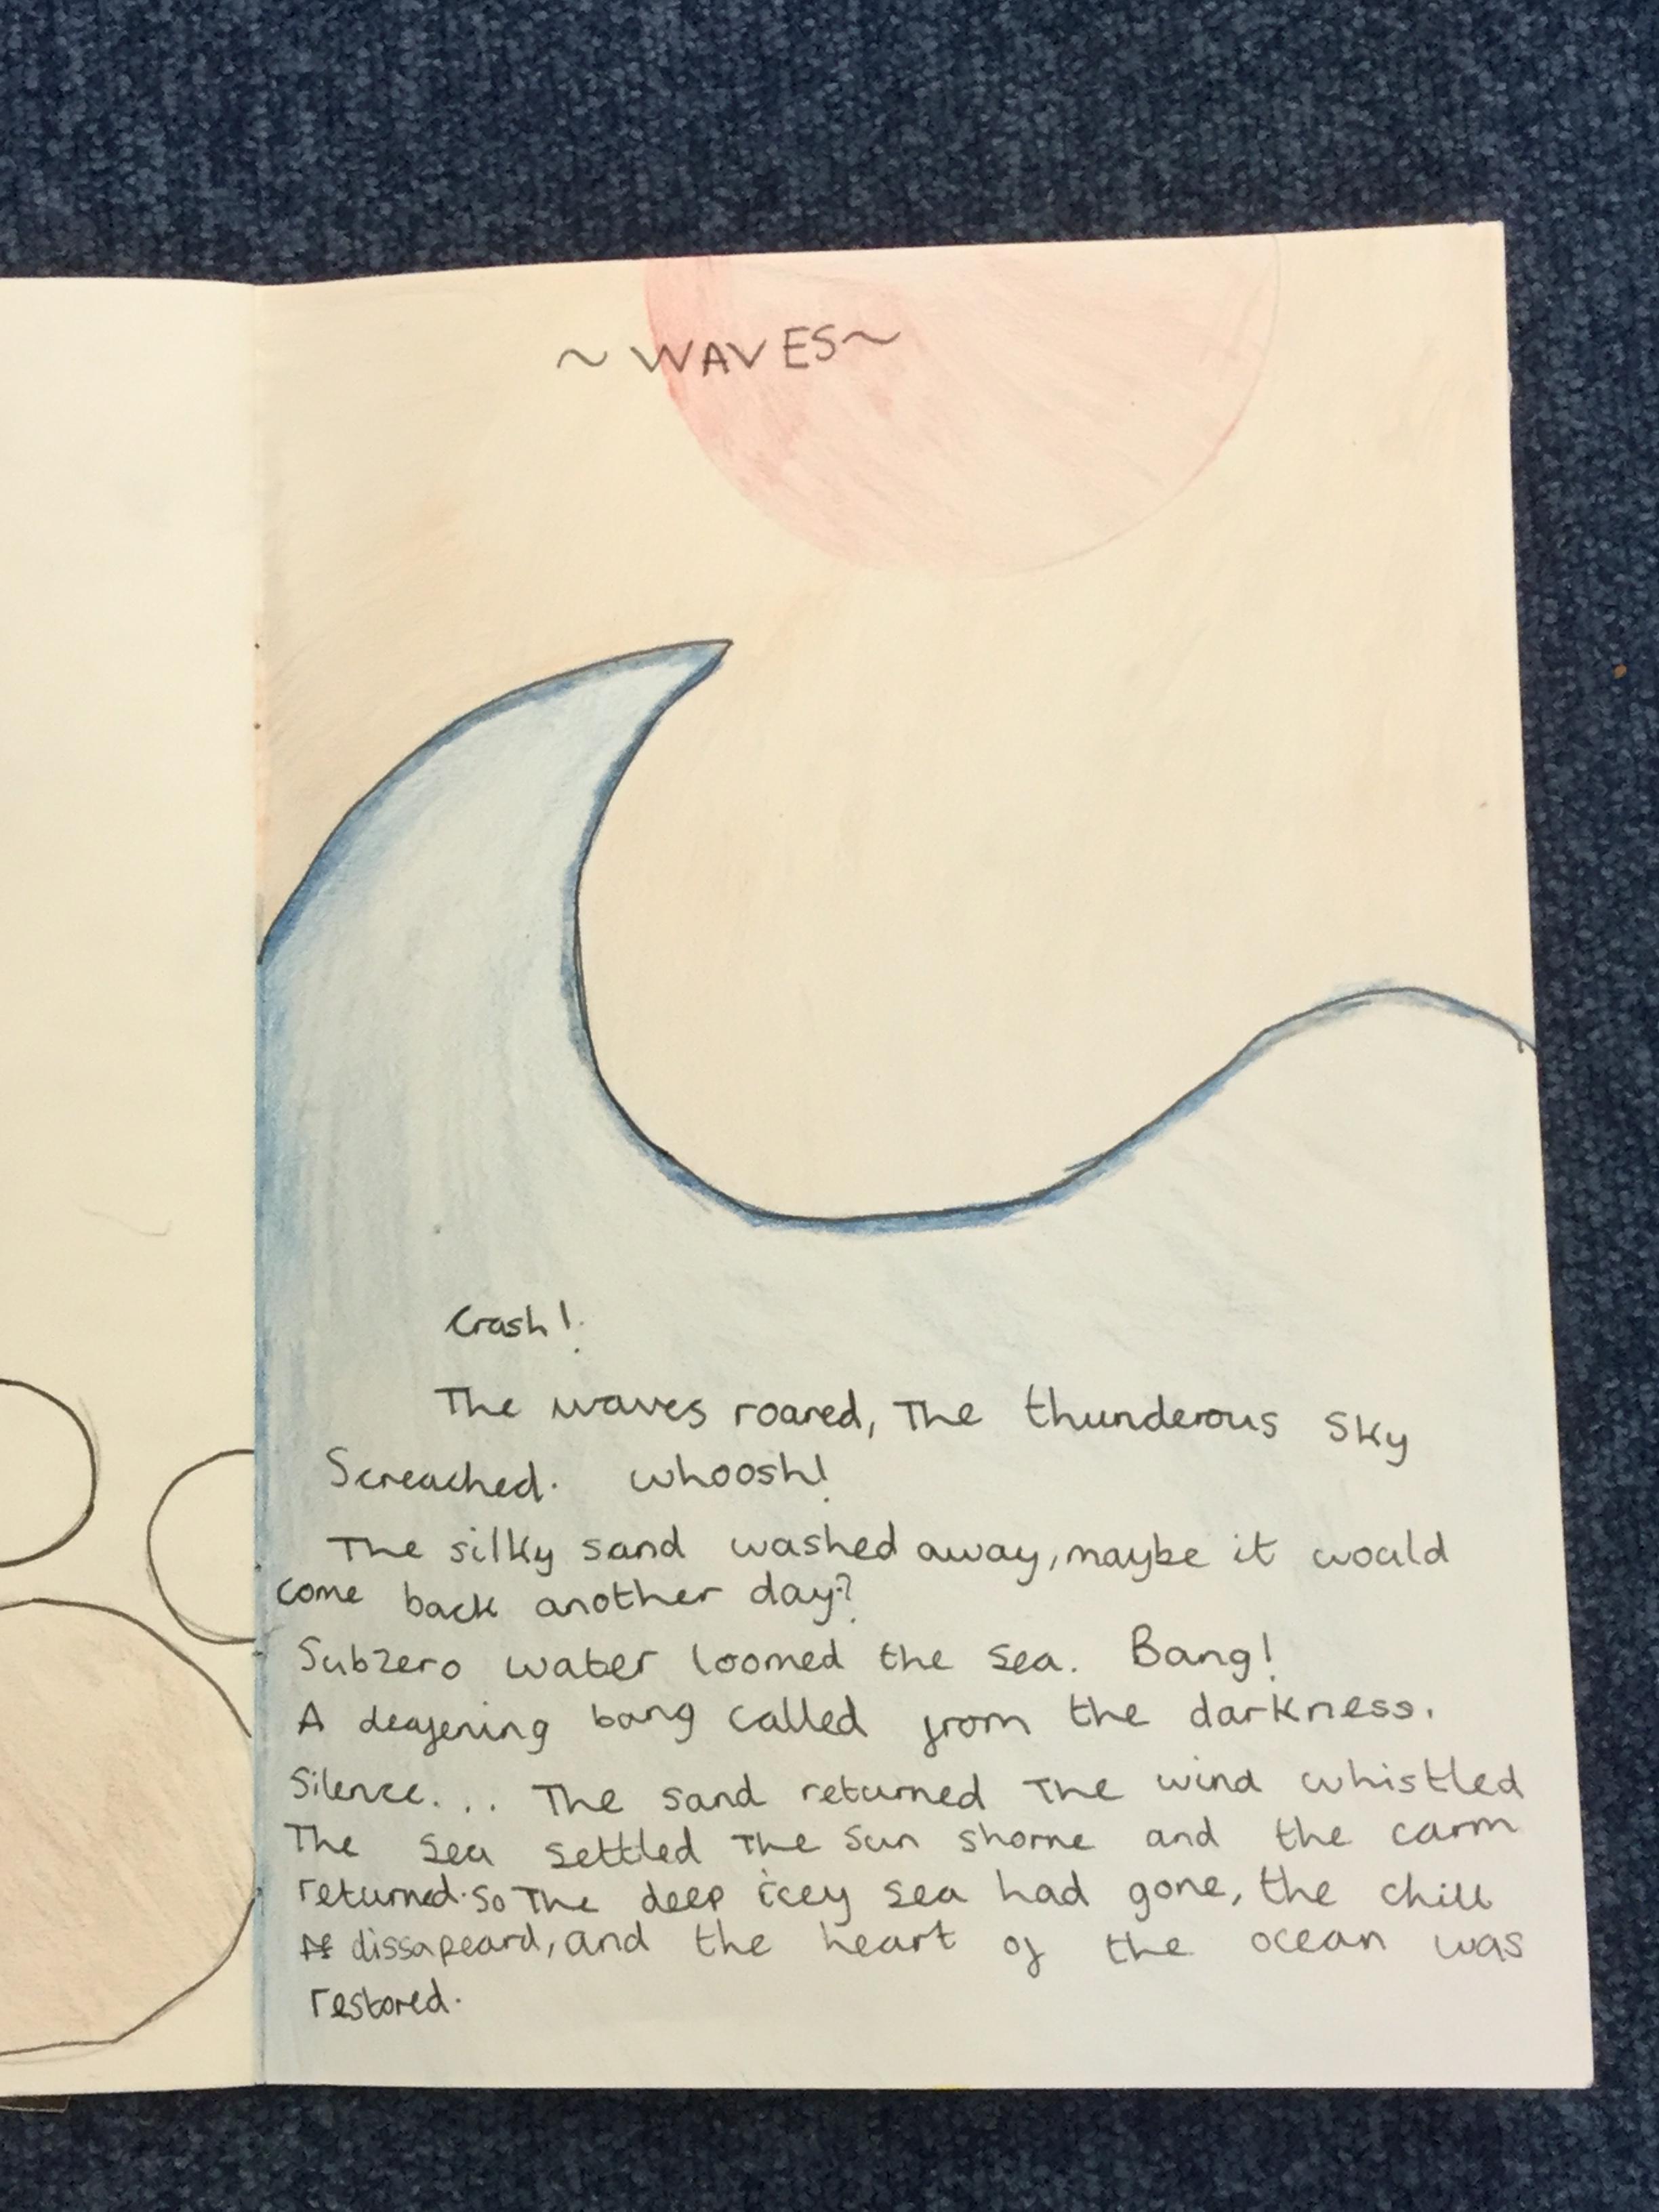 ~WAVES~
Crash!
The waves roared, The thunderous Sky
Screached. whoosh!
The silky sand washed away, maybe it would
come back another day?
Subzero water loomed the sea. Bang!
A deafening bang called from the darkness.
Silence... The sand returned The wind whistled
The sea settled The Sun shorne and the carm
returned. So The deep icey sea had gone, the chill
dissapeard, and the heart of the ocean was
restored.